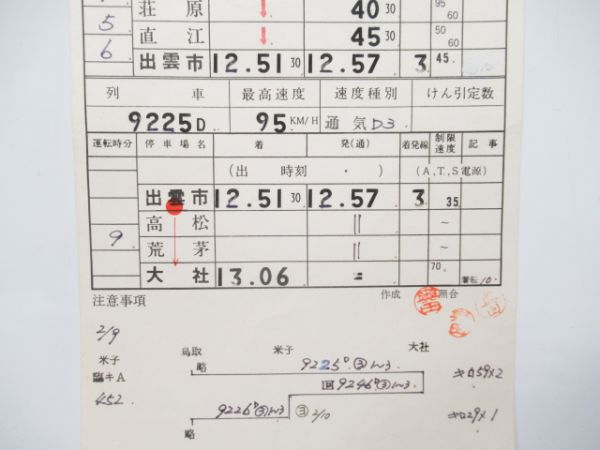 荘原 ↓ 40 30 95 60
5
直江 ↓ 45 30 50 60
6
出雲市 12.51 30 12.57 3 45.
列車 最高速度 速度種別 けん引定数
9225D 95 KM/H 通気D3
運転時分 停車場名 着 発(通) 着発線 制限速度 記事
(出 時刻 ・ ) (A,T,S電源)
出雲市 12.51 30 12.57 3 35
高松 〃 ~
9
荒茅 〃 ~
大社 13.06 = 70. 10.
注意事項 作成 照合
2/9
鳥取 米子 大社
米子 略 9225D ③
臨キA 回9246D ③ キロ59×2
452
9226D ③ ③ 2/10 キロ29×1
略